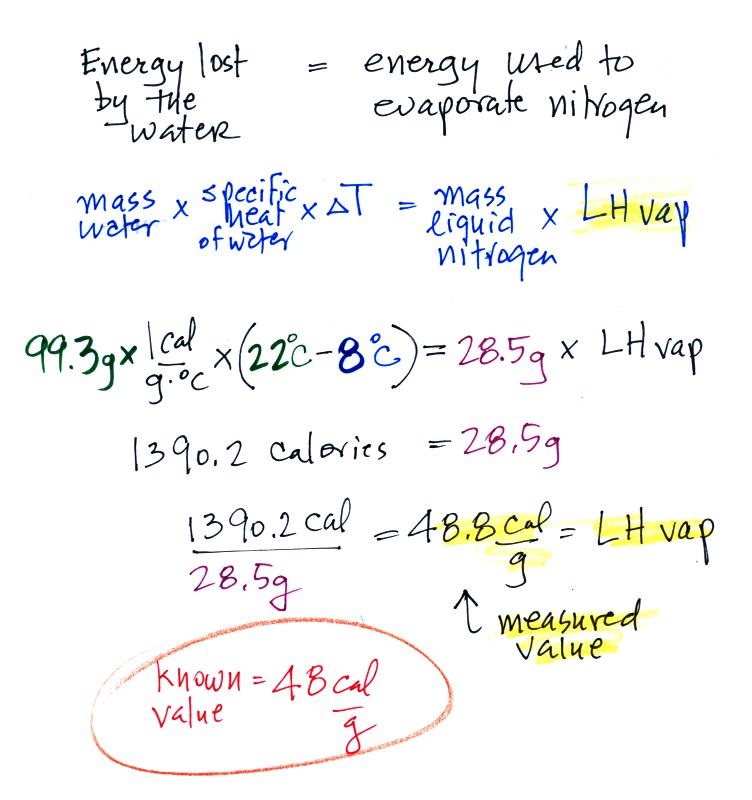 Energy lost = energy used to
by the evaporate nitrogen
water
mass water × specific heat of water × ΔT = mass liquid nitrogen × LH vap
99.3g × 1 cal/g·°C × (22°C - 8°C) = 28.5g × LH vap
1390.2 calories = 28.5g
1390.2 cal/28.5g = 48.8 cal/g = LH vap
↑ measured
value
known = 48 cal/g
value